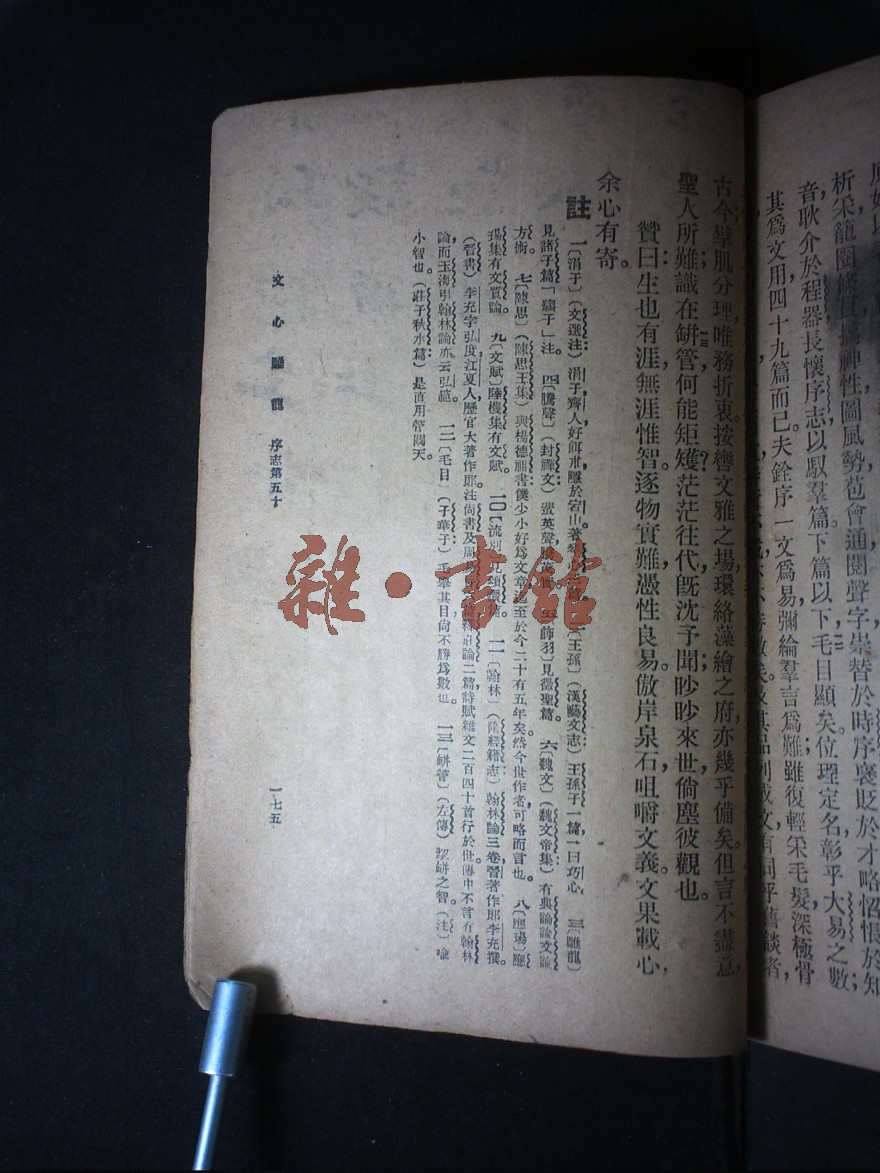 析采籠圈條貫摛神性圖風勢苞會通閱聲字崇替於時序褒貶於才略怊悵於知
音耿介於程器長懷序志以馭羣篇下篇以下毛目顯矣位理定名彰乎大易之數
其爲文用四十九篇而已夫銓序一文爲易彌綸羣言爲難雖復輕采毛髮深極骨
及其品列成文有同乎舊談者
古今擘肌分理唯務折衷按轡文雅之場環絡藻繪之府亦幾乎備矣但言不盡意
聖人所難識在缾管何能矩矱茫茫往代旣沈予聞眇眇來世倘塵彼觀也
贊曰生也有涯無涯惟智逐物實難憑性良易傲岸泉石咀嚼文義文果載心
余心有寄
註
一〔涓子〕(文選注)涓子齊人好餌朮隱於宕山著 〔王孫〕(漢藝文志)王孫子一篇一曰巧心 三〔雕龍〕
見諸子篇「騶子」注 四〔騰聲〕(封禪文)蜚英聲騰茂實 五〔飾羽〕見徵聖篇 六〔魏文〕(魏文帝集)有典論論文論
方術 七〔陳思〕(陳思王集)與楊德祖書僕少小好爲文章迄至於今二十有五年矣然今世作者可略而言也 八〔應瑒〕應
瑒集有文質論 九〔文賦〕陸機集有文賦 一〇〔流別〕見頌讚篇 一一〔翰林〕(隋經籍志)翰林論三卷晉著作郎李充撰
(晉書)李充字弘度江夏人歷官大著作郎注尙書及周易 釋莊論二篇詩賦雜文二百四十首行於世傳中不言有翰林
論而玉海引翰林論亦云弘範 一二〔毛目〕(子華子)毛舉其目尙不勝爲數也 一三〔缾管〕(左傳)挈缾之智(注)喩
小智也(莊子秋水篇)是直用管闚天
文心雕龍 序志第五十
一七五
雜·書館